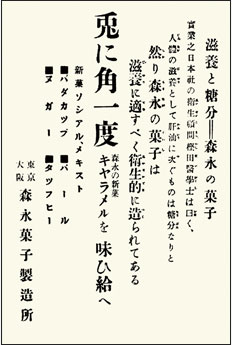 滋養と糖分＝森永の菓子
實業之日本社の衛生顧問櫻田醫學士は曰く、
人體の滋養として肝油に次ぐものは糖分なりと
然り森永の菓子は
滋養に適すべく衛生的に造られてある
兎に角一度
森永の新菓
キャラメルを味ひ給へ
新菓ソシアル、メキスト
■バダカップ ■パール
■ヌガー ■タッフヒー
東京
大阪
森永菓子製造所